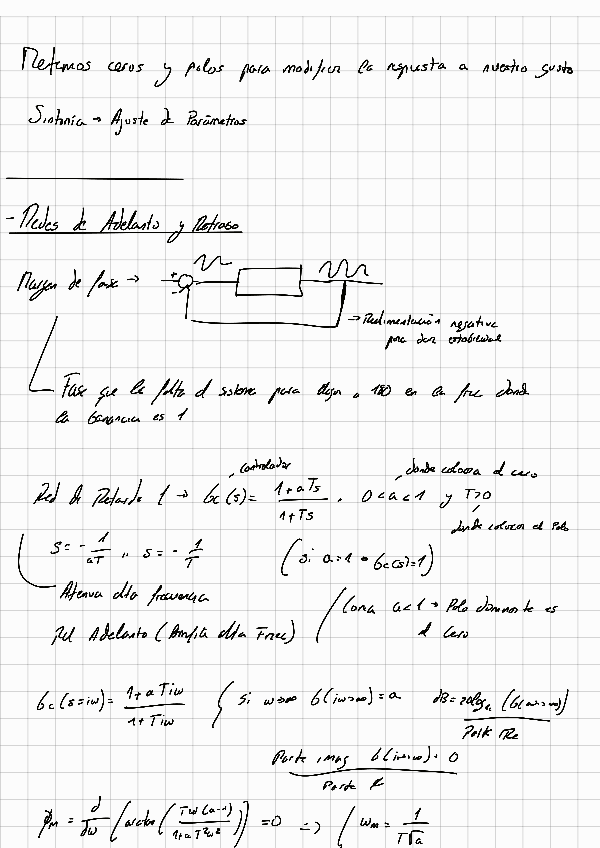 Metemos ceros y polos para modificar la respuesta a nuestro gusto
Sintonía → Ajuste de Parámetros
- Redes de Adelanto y Retraso
Margen de fase →
→ Realimentación negativa
para dar estabilidad
Fase que le falta al sistema para llegar a 180 en la frec donde
la Ganancia es 1
controlador
donde colocas el cero
Red de Retardo 1 → Gc(s) = (1+aTs)/(1+Ts) , 0<a<1 y T>0
donde colocas el Polo
s = -1/(aT) ,, s = -1/T (si a=1 → Gc(s)=1)
Atenua alta frecuencia
Como a<1 → Polo dominante es
el cero
Adelanto (Amplia alta Frec)
Gc(s=iw) = (1+aTiw)/(1+Tiw) Si w→∞ G(iw→∞) = a dB = 20log (G(w→∞))
Parte Re
Parte imag G(iw→∞) = 0
Parte
ϕm = d/dw (arctan((Tw(a-1))/(1+aT²w²))) = 0 => wm = 1/(T√a)